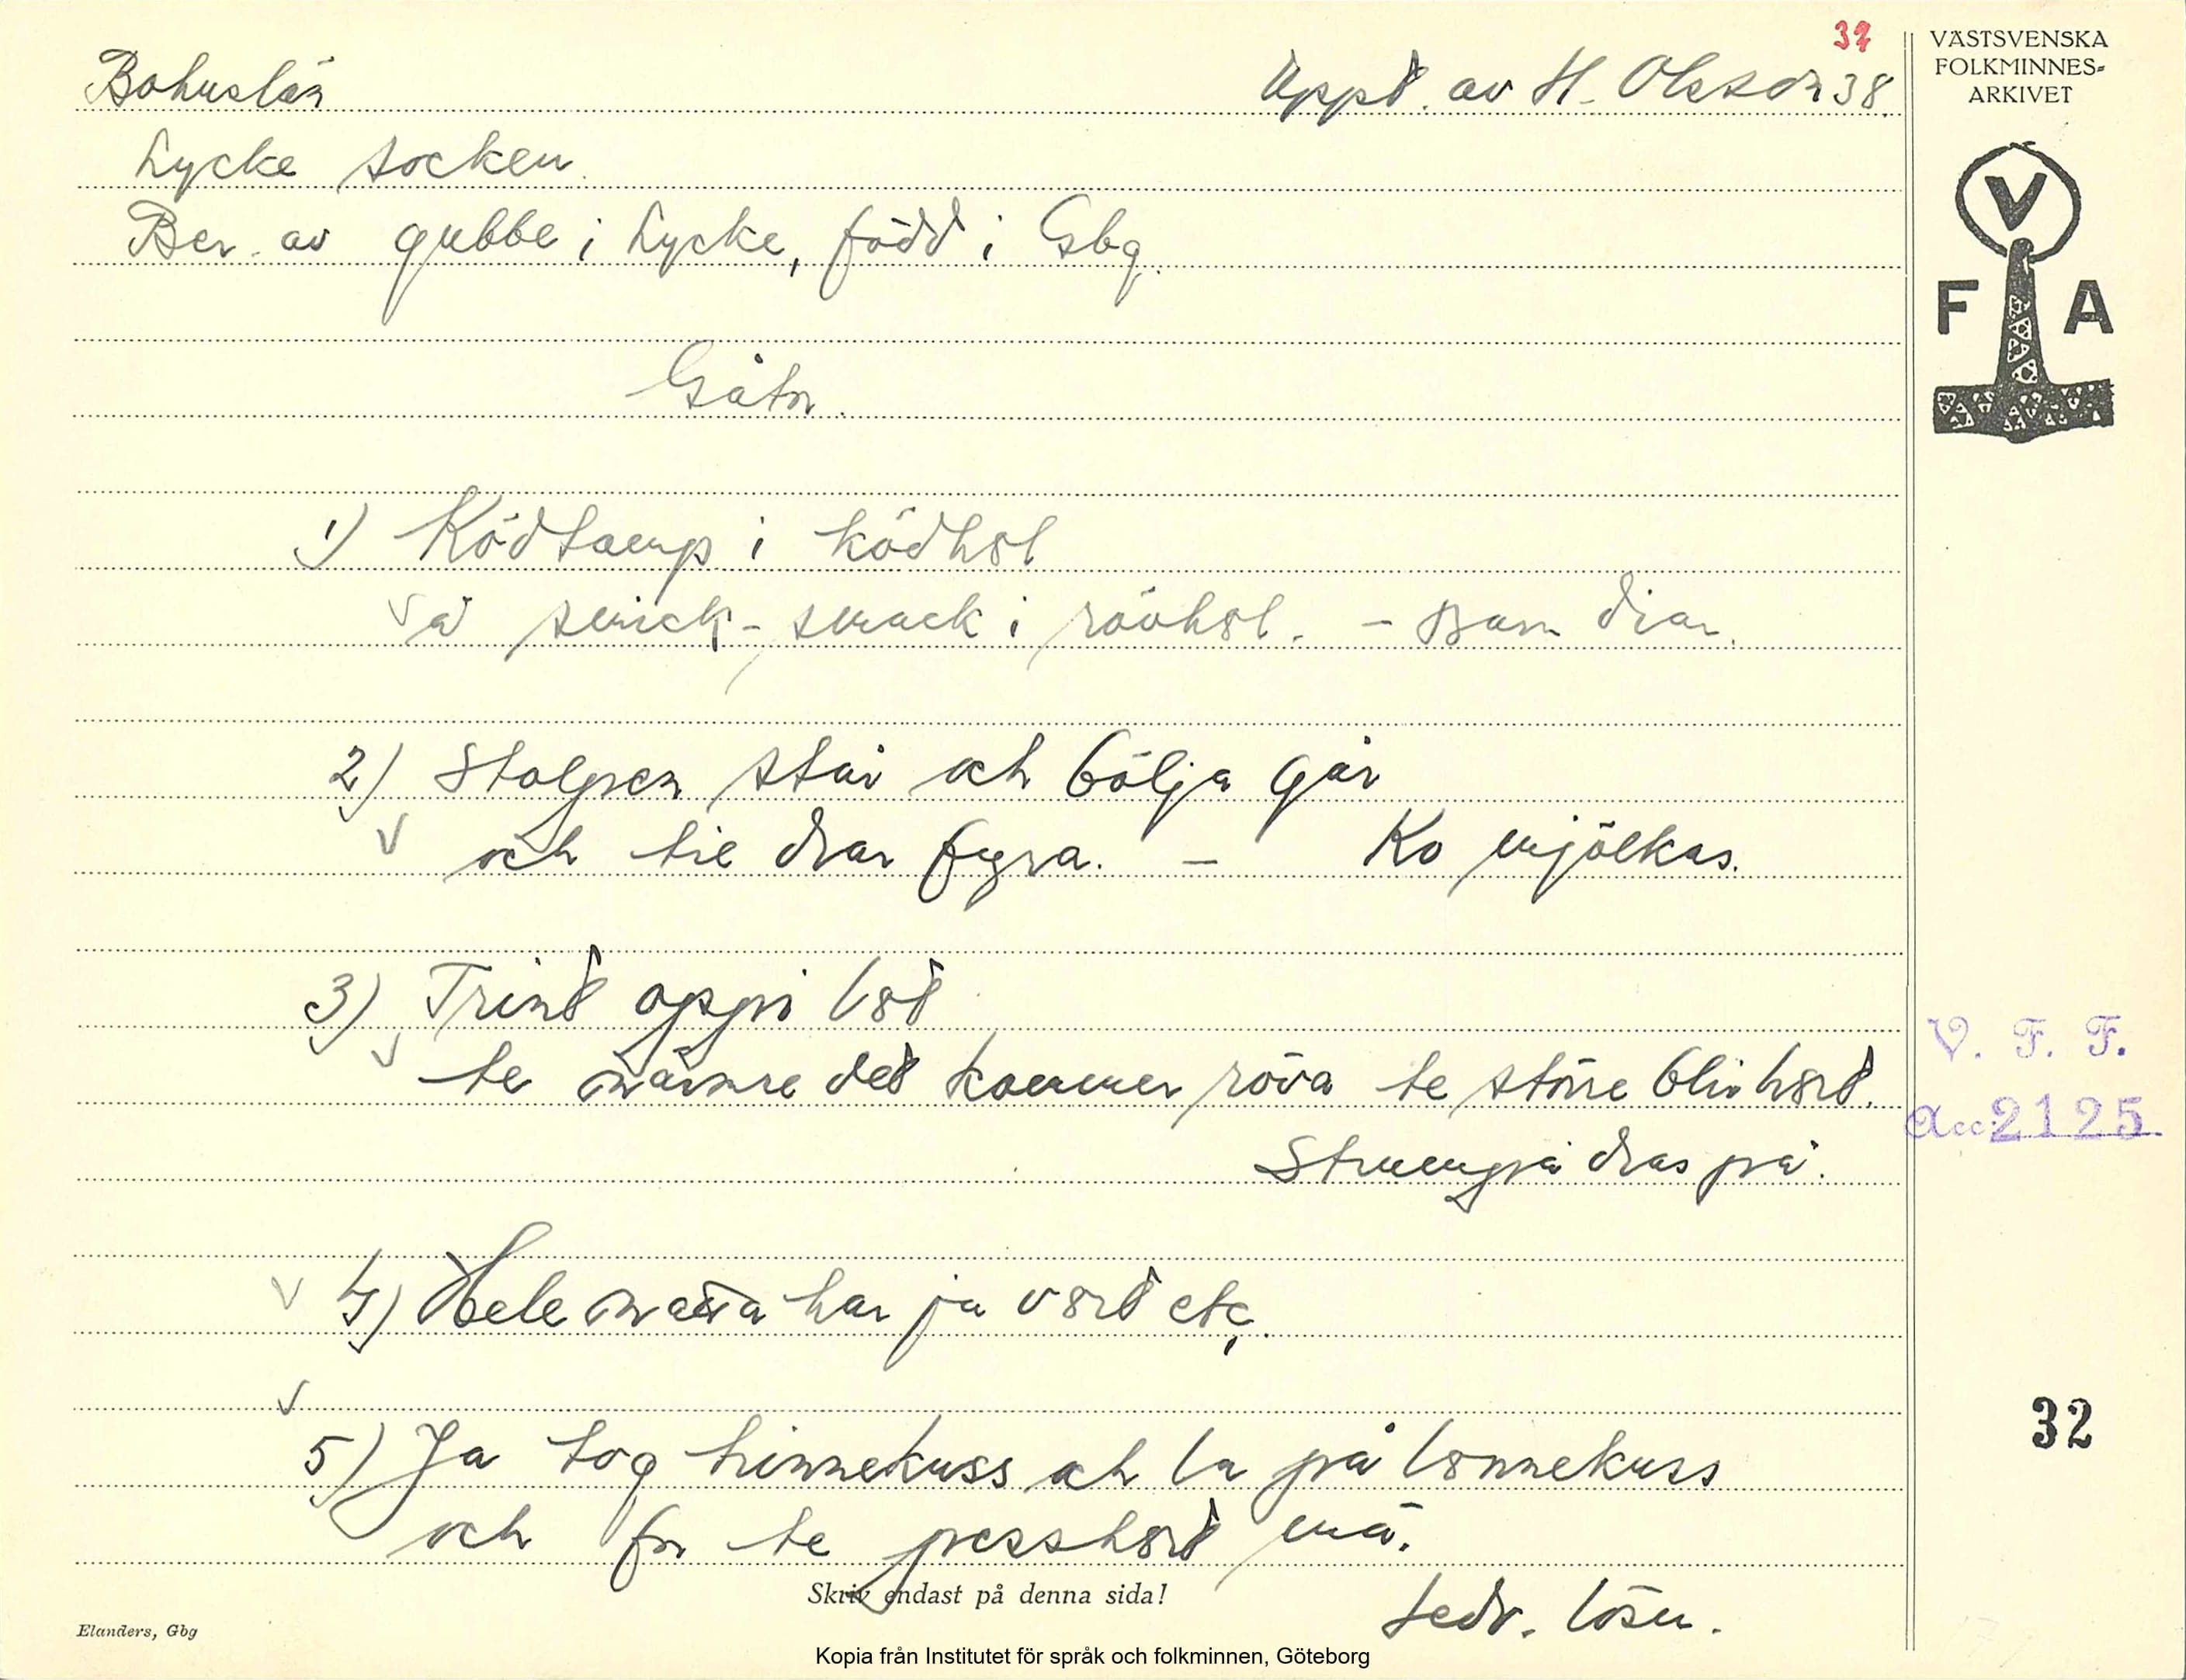 32
Bohuslän
Uppt. av H. Olsson 38.
Lycke socken.
Ber. av gubbe i Lycke, född i Gbg.
Gåtr.
1) Ködtamp i ködhol
å smick-smack i rövhol. - Barn diar.
2) Stolpen står och bölja går
och tie drar fyra. - Ko mjölkas.
3) Trint oppi lot
te närmre det kommer röva te större blir hort.
Strumpa dras på.
4) Hele natta har ja vort etc.
5) Ja tog hinnekuss och la på lonnekuss
och for te pesshort mä.
sedv. lösn.
VÄSTSVENSKA
FOLKMINNES-
ARKIVET
V
F A
V. F. F.
Acc: 2125
32
Skriv endast på denna sida!
Elanders, Gbg
Kopia från Institutet för språk och folkminnen, Göteborg